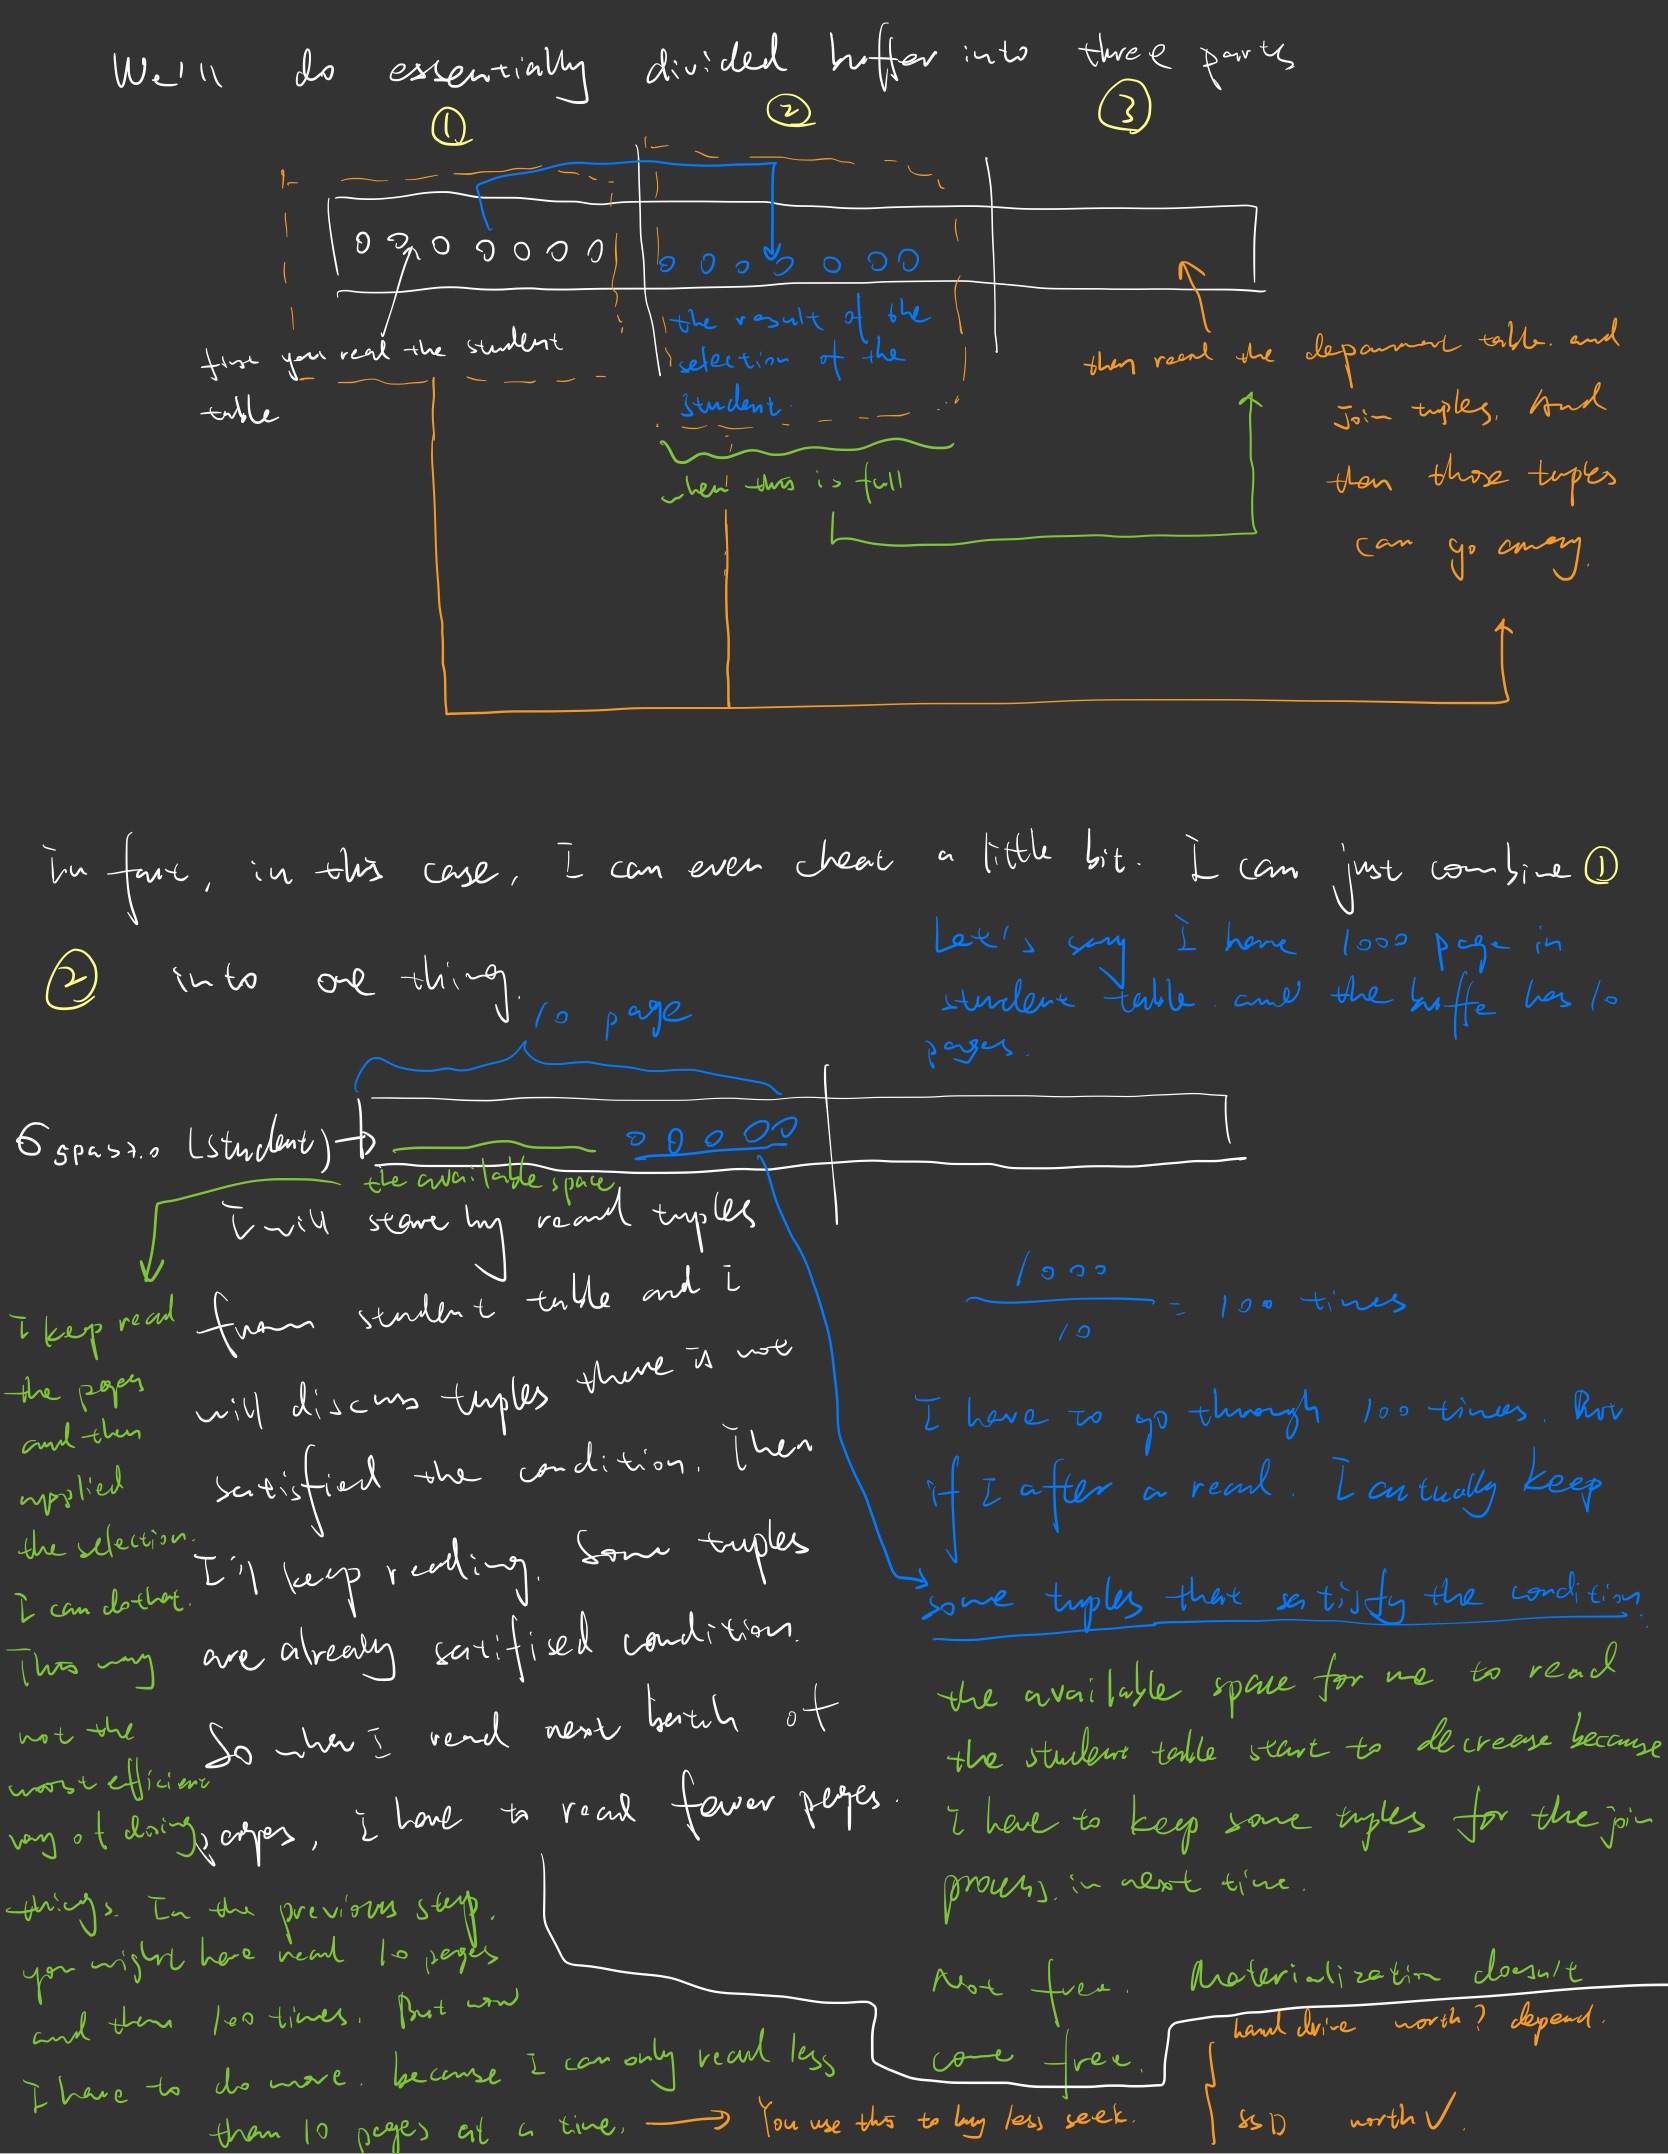 We'll do essentially divided buffer into three parts
① ② ③
first you read the student
table
the result of the
selection of the
student.
when this is full
then read the department table. and
join tuples. And
then those tuples
can go away.
In fact, in this case, I can even cheat a little bit. I can just combine ①
② into one thing.
Let's say I have 1000 page in
student table. and the buffe has 10
pages.
10 page
(student)
the available space
I will start by read tuples
from student table and I
will discuss tuples there is not
satisfied the condition. Then
I'll keep reading. Some tuples
are already satifised condition.
So when I read next batch of
pages, I have to read fewer pages.
I keep read
the pages
and then
applied
the selection.
I can do that.
This may
not the
most efficient
way of doing
things. In the previous step.
you might have read 10 pages
and then 100 times. But now
I have to do more. because I can only read less
than 10 pages at a time.
You use this to buy less seek.
1000
10
= 100 times
I have to go through 100 times. But
if I after a read. I actually keep
some tuples that satisfy the condition.
the available space for me to read
the student table start to decrease because
I have to keep some tuples for the join
process. in next time.
Not free. Materialization doesn't
come free.
hard drive worth? depend.
SSD worth ✓.